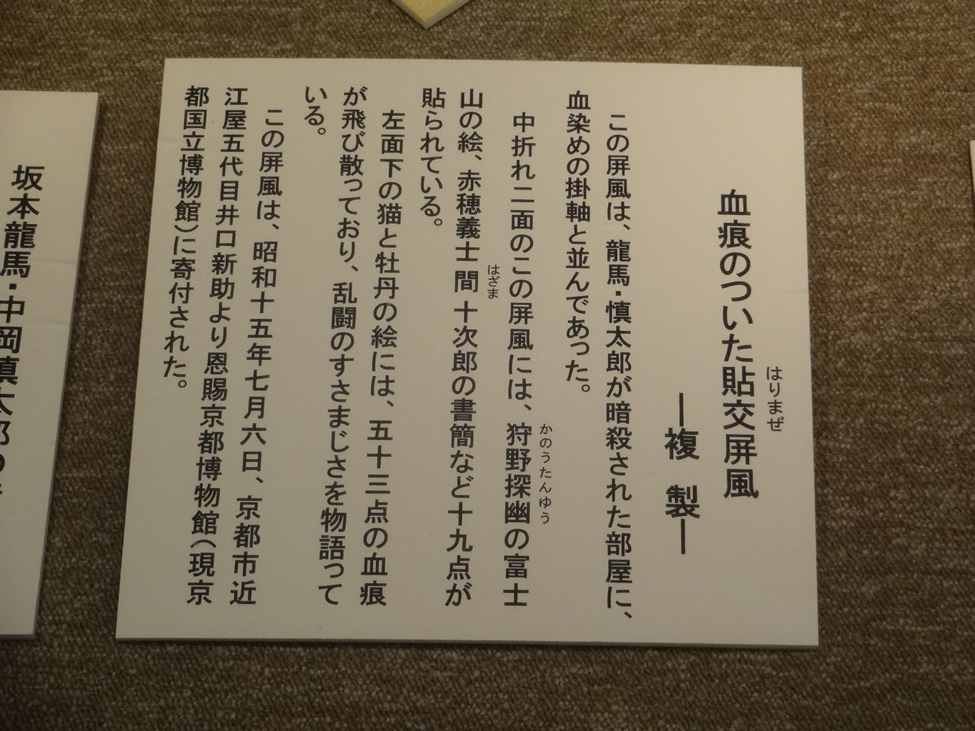 血痕のついた貼交屏風
はりまぜ
―複 製―
この屏風は、龍馬・慎太郎が暗殺された部屋に、
血染めの掛軸と並んであった。
中折れ二面のこの屏風には、狩野探幽の富士
かのうたんゆう
山の絵、赤穂義士間十次郎の書簡など十九点が
はざま
貼られている。
左面下の猫と牡丹の絵には、五十三点の血痕
が飛び散っており、乱闘のすさまじさを物語って
いる。
この屏風は、昭和十五年七月六日、京都市近
江屋五代目井口新助より恩賜京都博物館(現京
都国立博物館)に寄付された。
坂本龍馬・中岡慎太郎の